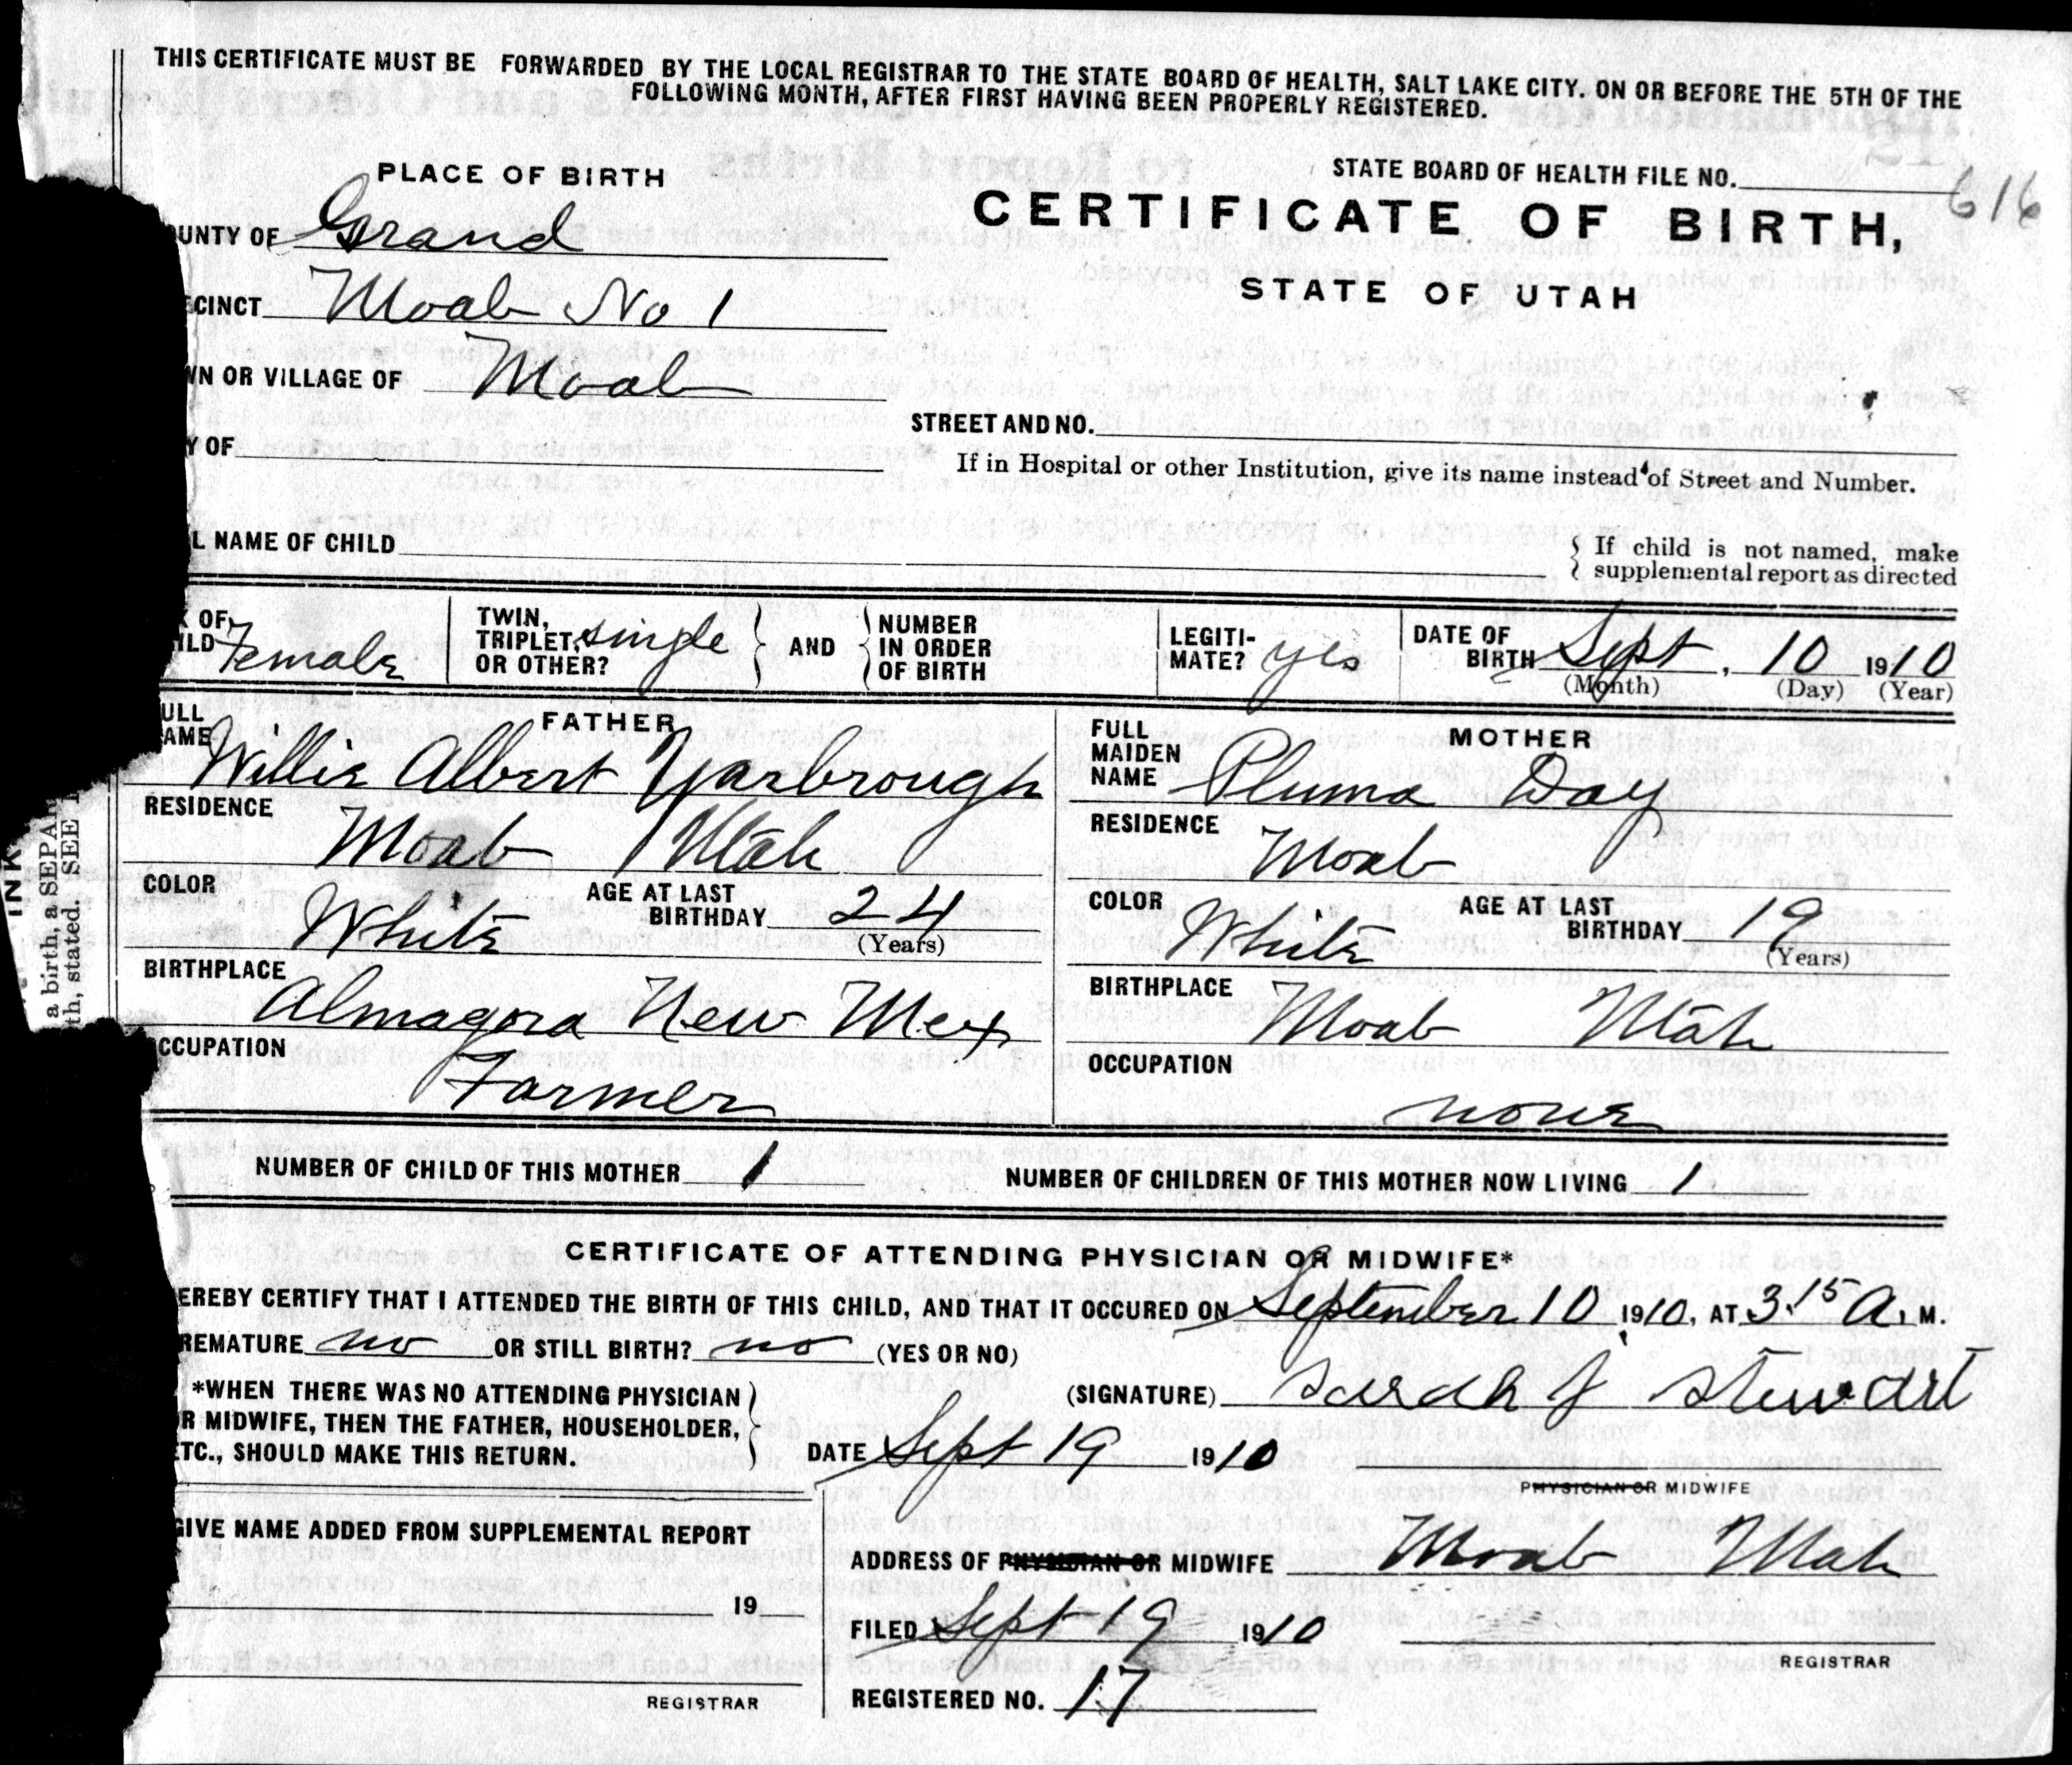 THIS CERTIFICATE MUST BE FORWARDED BY THE LOCAL REGISTRAR TO THE STATE BOARD OF HEALTH, SALT LAKE CITY. ON OR BEFORE THE 5TH OF THE
FOLLOWING MONTH, AFTER FIRST HAVING BEEN PROPERLY REGISTERED.
PLACE OF BIRTH
STATE BOARD OF HEALTH FILE NO. 616
CERTIFICATE OF BIRTH,
STATE OF UTAH
OUNTY OF Grand
CINCT Moab No 1
WN OR VILLAGE OF Moab
STREET AND NO.
Y OF
If in Hospital or other Institution, give its name instead of Street and Number.
L NAME OF CHILD
If child is not named, make
supplemental report as directed
X OF
ILD Female
TWIN,
TRIPLET,
OR OTHER? single
AND
NUMBER
IN ORDER
OF BIRTH
LEGITI-
MATE? yes
DATE OF
BIRTH Sept, 10 1910
(Month) (Day) (Year)
FATHER
ULL
AME Willie Albert Yarbrough
RESIDENCE
Moab Utah
COLOR
White
AGE AT LAST
BIRTHDAY 24
(Years)
BIRTHPLACE
Almagora New Mex
CCUPATION
Farmer
MOTHER
FULL
MAIDEN
NAME Pluma Day
RESIDENCE
Moab
COLOR
White
AGE AT LAST
BIRTHDAY 19
(Years)
BIRTHPLACE
Moab Utah
OCCUPATION
none
NUMBER OF CHILD OF THIS MOTHER 1
NUMBER OF CHILDREN OF THIS MOTHER NOW LIVING 1
CERTIFICATE OF ATTENDING PHYSICIAN OR MIDWIFE*
EREBY CERTIFY THAT I ATTENDED THE BIRTH OF THIS CHILD, AND THAT IT OCCURED ON September 10 1910, AT 3.15 A. M.
REMATURE no OR STILL BIRTH? no (YES OR NO)
*WHEN THERE WAS NO ATTENDING PHYSICIAN
R MIDWIFE, THEN THE FATHER, HOUSEHOLDER,
ETC., SHOULD MAKE THIS RETURN.
(SIGNATURE) Sarah J Stewart
DATE Sept 19 1910
PHYSICIAN OR MIDWIFE
GIVE NAME ADDED FROM SUPPLEMENTAL REPORT
19
REGISTRAR
ADDRESS OF PHYSICIAN OR MIDWIFE Moab Utah
FILED Sept 19 1910
REGISTRAR
REGISTERED NO. 17
INK
a birth, a SEPA
th, stated. SEE